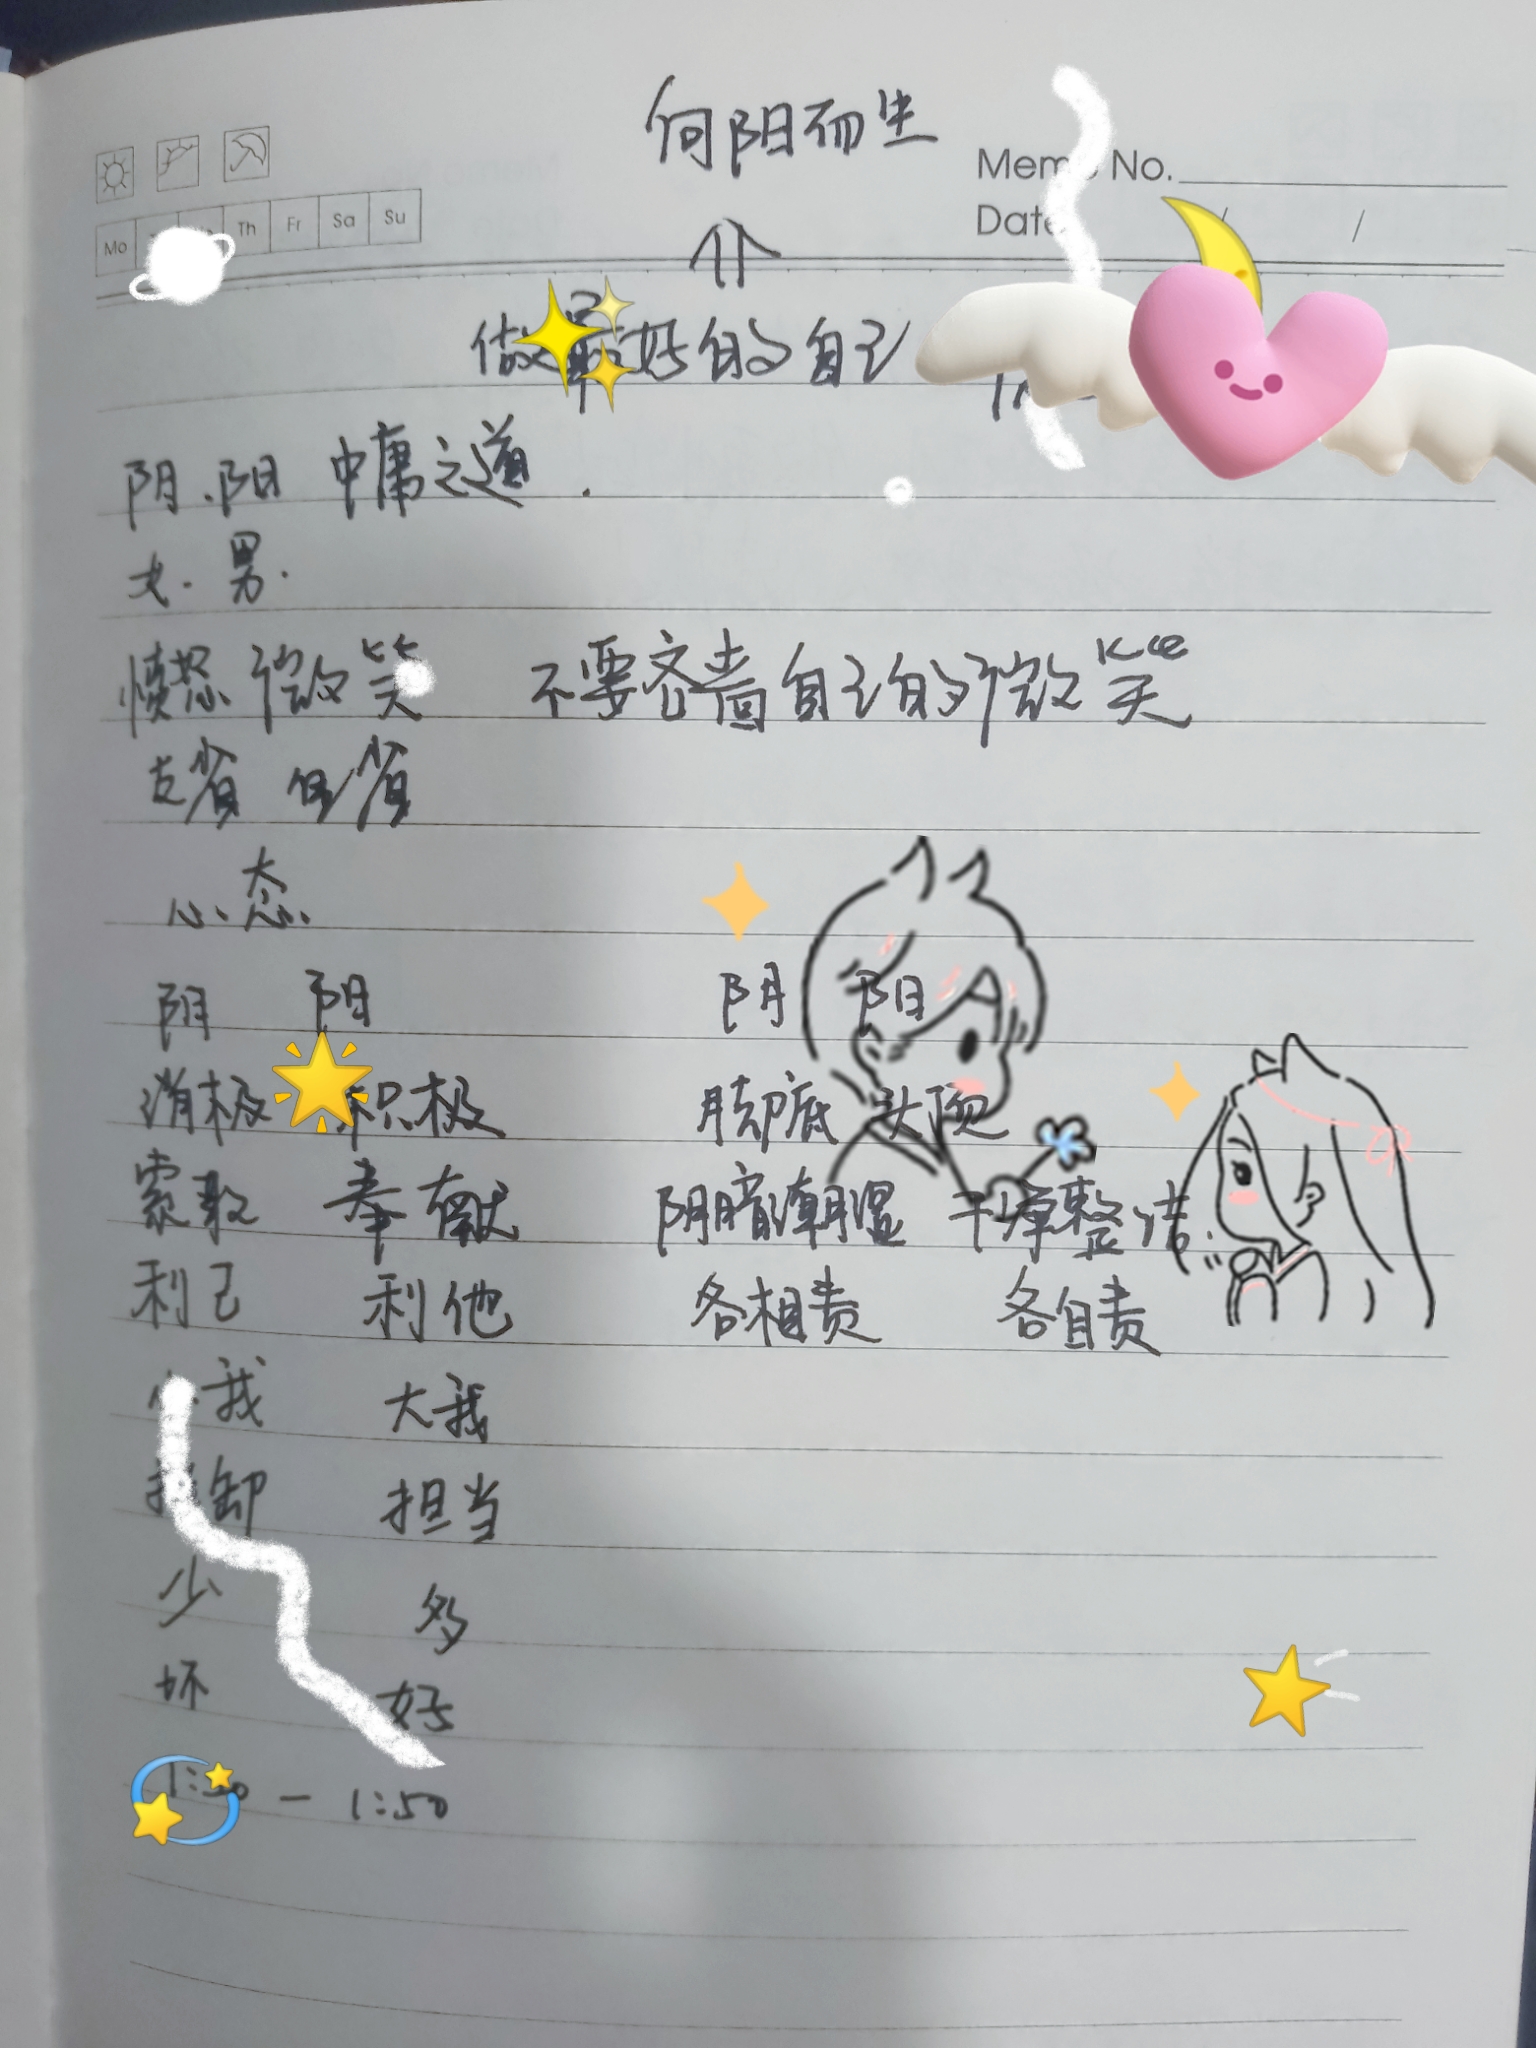 向阳而生
Memo No.
Date / /
Mo Th Fr Sa Su
做最好的自己
阴.阳 中庸之道.
女.男.
愤怒 微笑 不要吝啬自己的微笑
心态
阴 阳 阴 阳
消极 积极 脚底 头顶
索取 奉献 阴暗潮湿 干净整洁.
利己 利他 各相责 各自责
小我 大我
推卸 担当
少 多
坏 好
— 1:50